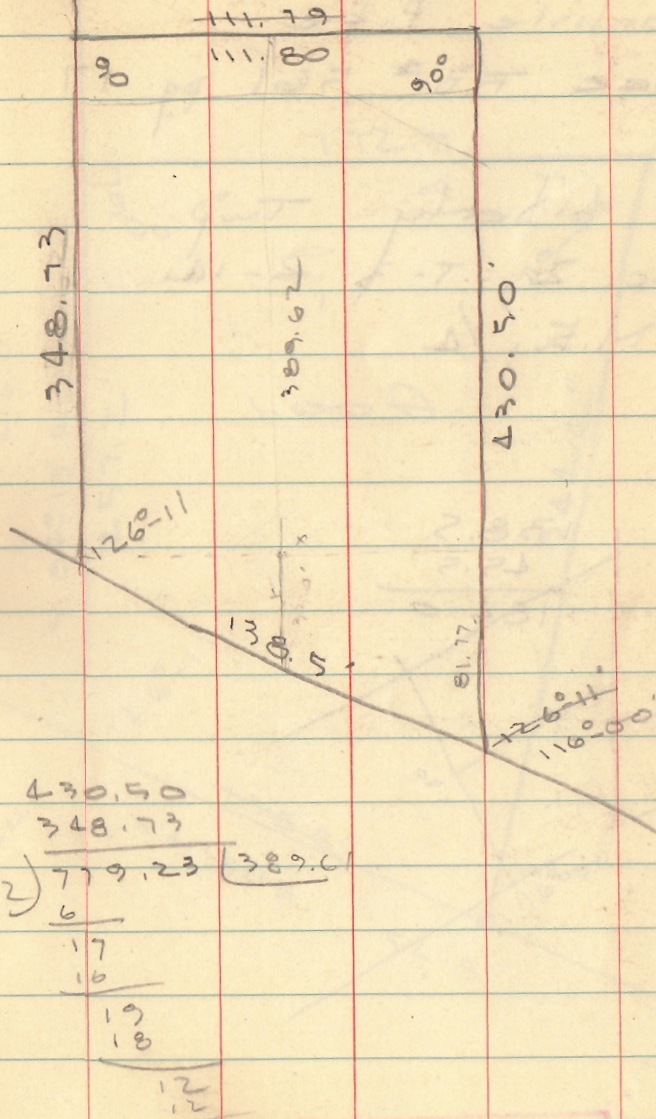 111.79
111.80
90
90°
348.73
389.62
430.50'
126°-11
138.5'
81.77
126°-11'
116°-00'
430.50
348.73
2) 779.23 389.61
6
17
16
19
18
12
12